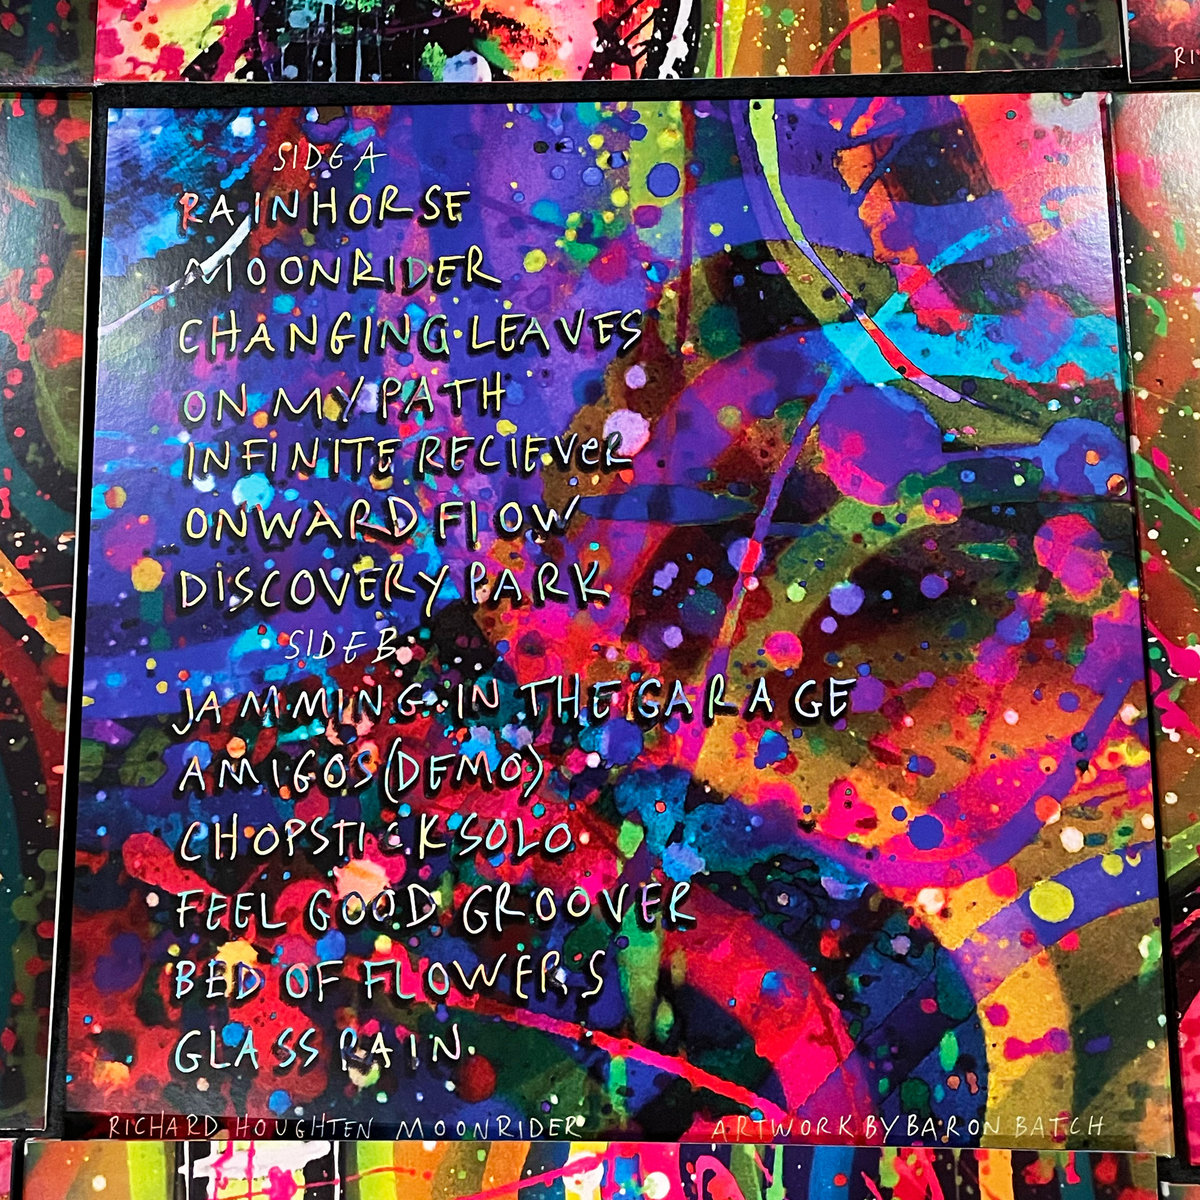 RI
SIDE A
RAINHORSE
MOONRIDER
CHANGING LEAVES
ON MY PATH
INFINITE RECIEVER
ONWARD FLOW
DISCOVERY PARK
SIDE B
JAMMING IN THE GARAGE
AMIGOS (DEMO)
CHOPSTICK SOLO
FEEL GOOD GROOVER
BED OF FLOWERS
GLASS RAIN
RICHARD HOUGHTEN MOONRIDER ARTWORK BY BARON BATCH